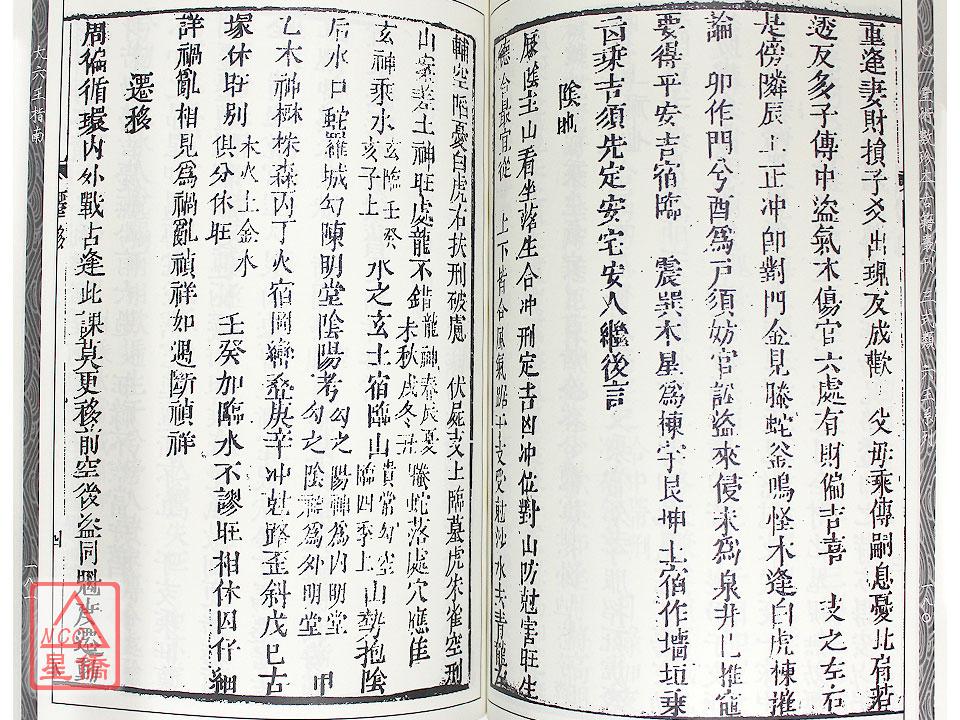 重逢妻財損子爻出現反成歡 父母乘傳嗣息憂比肩若
逡反多子傳中盜氣木傷官六處有財偏吉喜 支之左右
是傍隣辰上正冲即對門金見螣蛇釜鳴怪木逢白虎棟摧
論 卯作門兮酉為戶須妨官訟盜來侵未為泉井巳推竈
要得平安吉宿臨 震巽木星為棟宇艮坤土宿作墻垣乘
凶乘吉須先定安宅安人繼後言
陰地
屬陰主山看坐落生合冲刑定吉凶冲位對山防尅害旺生
德合最宜從 上下皆合風氣
輔空陷憂白虎右扶刑破慮 伏屍支上臨墓虎朱雀空刑
山案差土神旺處龍不錯龍神春辰夏未秋戌冬丑螣蛇落處穴應佳
玄神乘水玄臨壬癸亥子上 水之玄土宿臨山貴常勾空臨四季上山勢抱陰
后水口蛇羅城勾陳明堂陰陽考勾之陽神為內明堂勾之陰神為外明堂 甲
乙木神林株森丙丁火宿岡巒叠庚辛冲尅路歪斜戊巳古
塚休旺別木火土金水俱分休旺 壬癸加臨水不謬旺相休囚仔細
詳禍亂相見為禍亂禎祥如遇斷禎祥
遷移
周徧循環內外戰占逢此課莫更移前空後盜同
大六壬指南
遷移
四
NCC
星僑